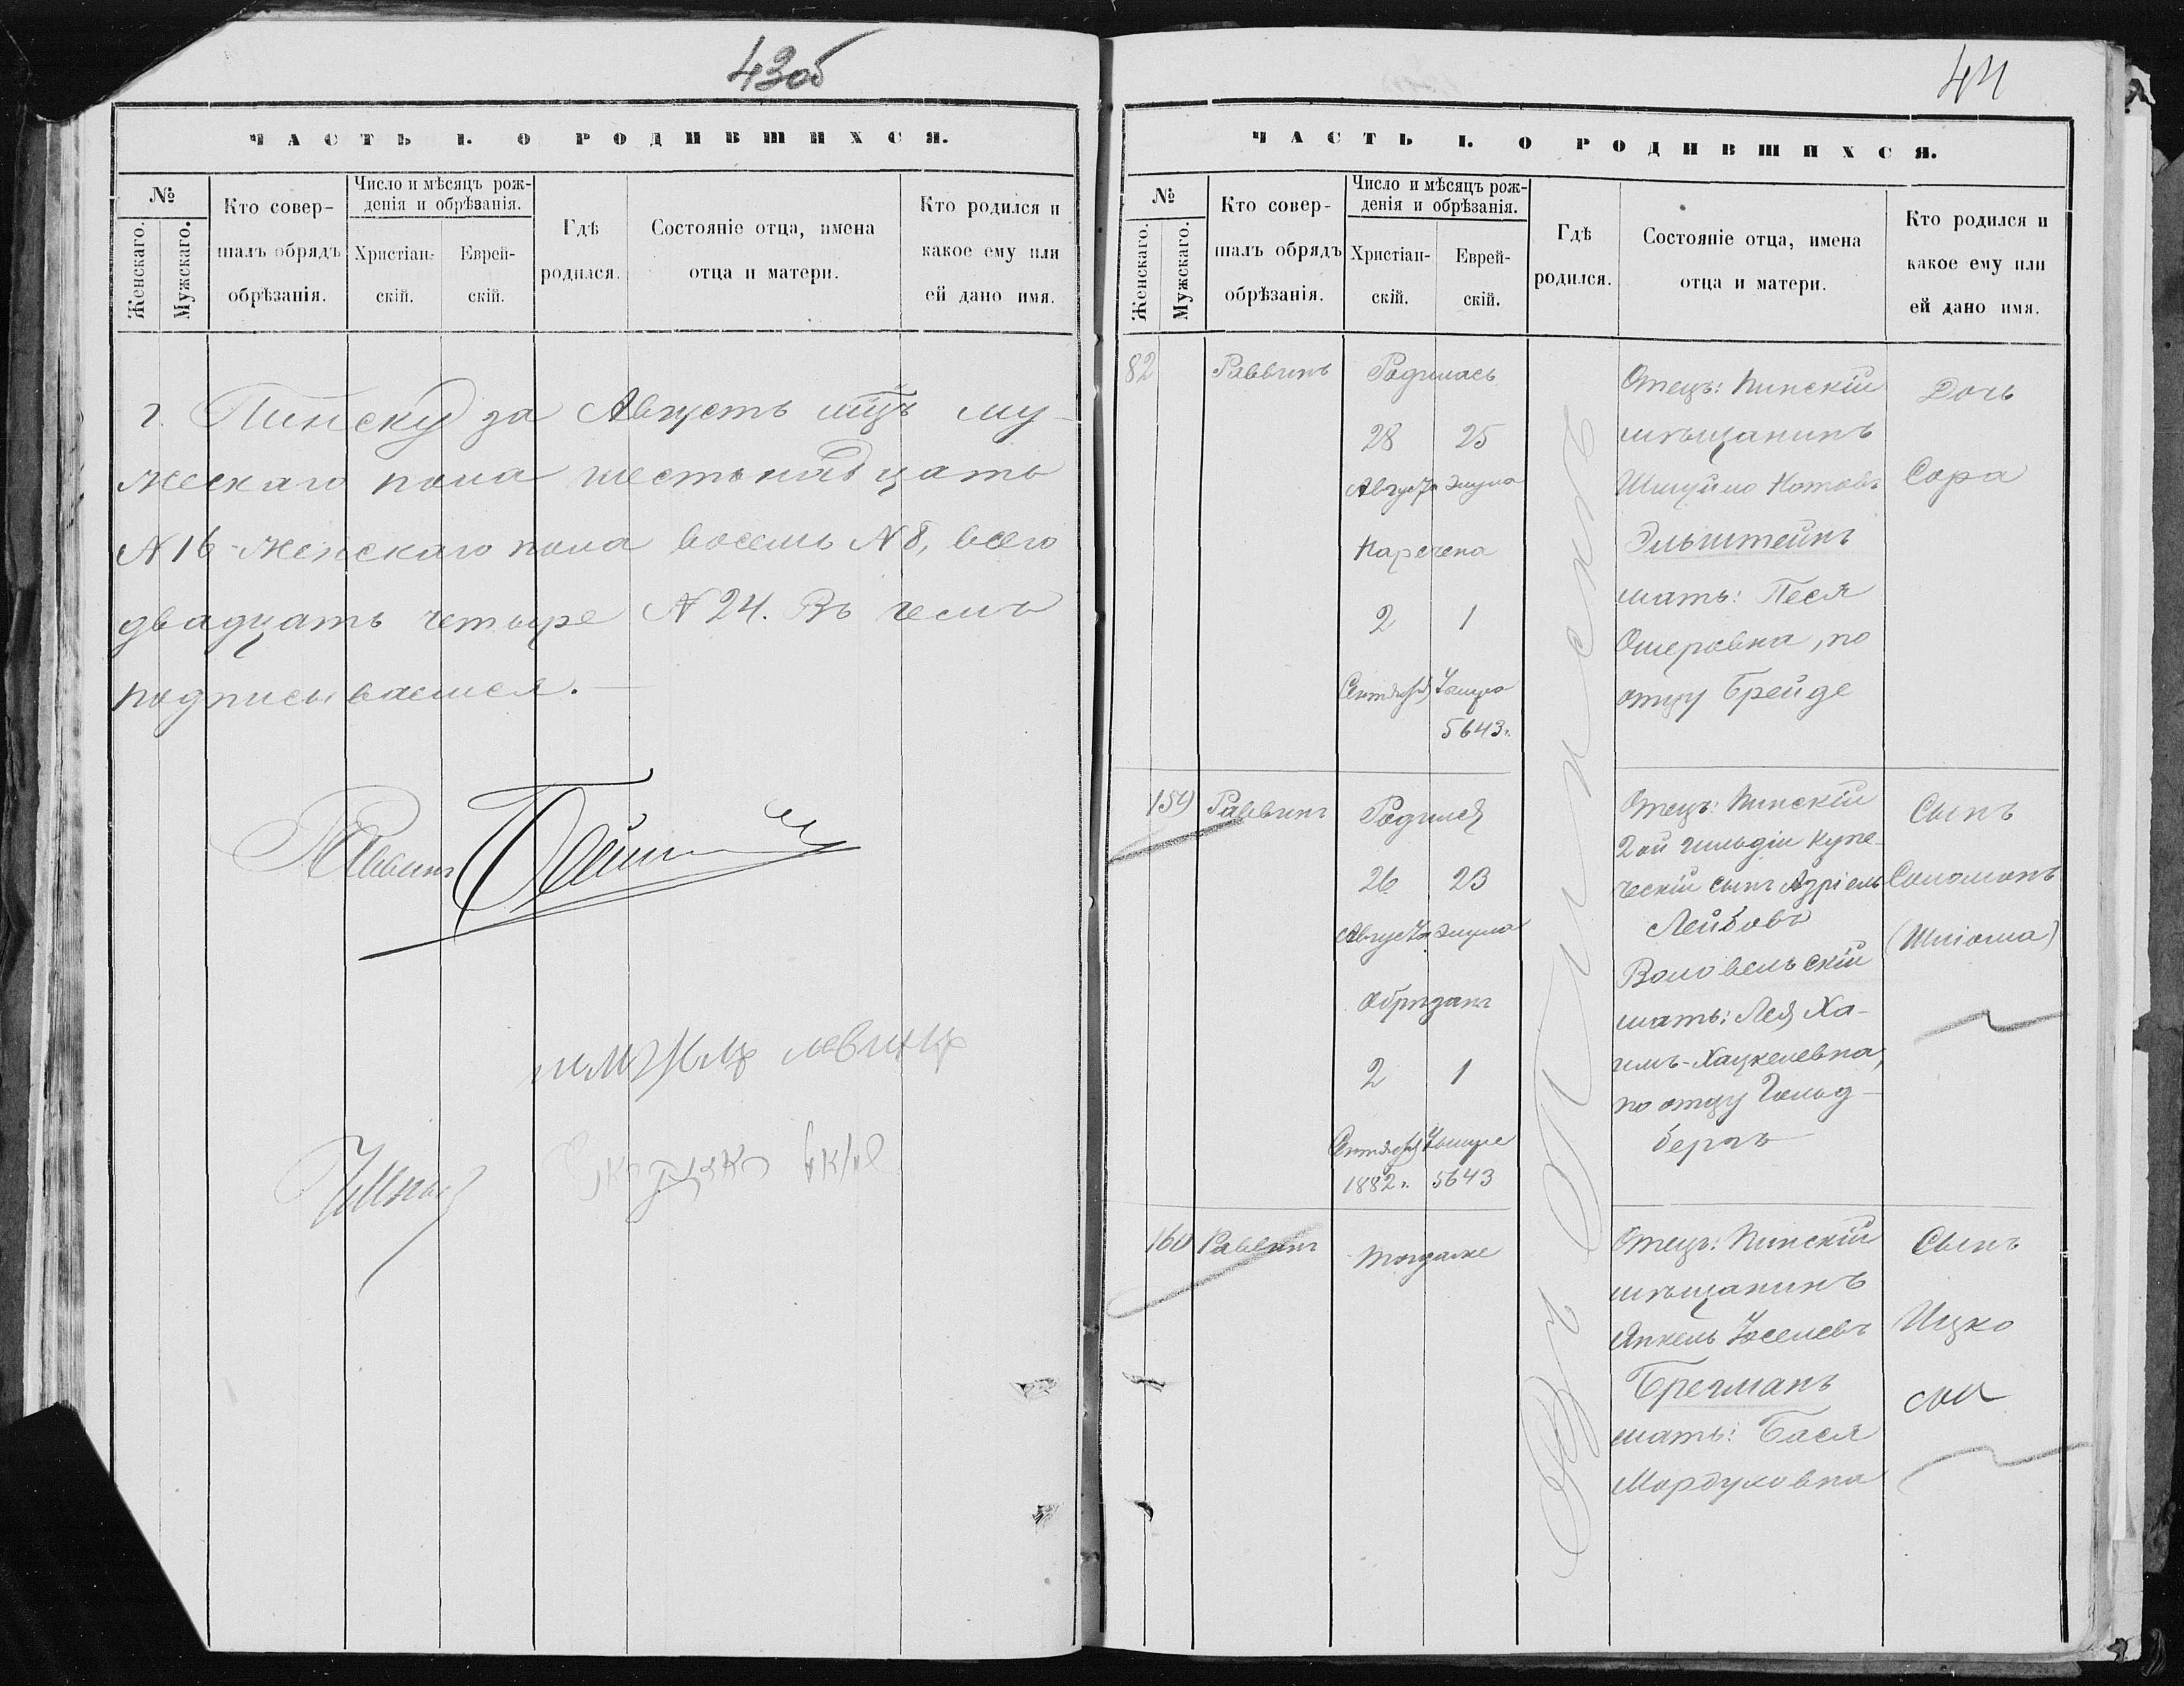 43об
ЧАСТЬ I. О РОДИВШИХСЯ.
№
Женскаго.
Мужскаго.
Кто совер-
шалъ обрядъ
обрѣзанія.
Число и мѣсяцъ рож-
денія и обрѣзанія.
Христіан-
скій.
Еврей-
скій.
Гдѣ
родился.
Состояніе отца, имена
отца и матери.
Кто родился и
какое ему или
ей дано имя.
г. Пинску за Августъ мцъ му-
жескаго пола шестьнадцать
N 16 - женскаго пола восемь N 8, всего
двадцать четыре N 24. Въ чемъ
подписываемся. —
Раввинъ
44
ЧАСТЬ I. О РОДИВШИХСЯ.
№
Женскаго.
Мужскаго.
Кто совер-
шалъ обрядъ
обрѣзанія.
Число и мѣсяцъ рож-
денія и обрѣзанія.
Христіан-
скій.
Еврей-
скій.
Гдѣ
родился.
Состояніе отца, имена
отца и матери.
Кто родился и
какое ему или
ей дано имя.
Въ Пинскѣ
82
Раввинъ
Родилась
28 25
Августа Элула
Наречена
2 1
Сентября Тишре
5643 г.
Отецъ: Пинскій
мѣщанинъ
Шмуйло Нотовъ
Эльштейнъ
мать: Песя
Ошеровна, по
отцу Брейде
Дочь
Сора
159
Раввинъ
Родился
26 23
Августа Элула
Обрѣзанъ
2 1
Сентября Тишре
1882 г. 5643
Отецъ: Пинскій
2ой гильдіи купе-
ческій сынъ Азріель
Лейбовъ
Воловельскій
мать: Лея Ха-
имъ-Хацкелевна,
по отцу Гольд-
бергъ
Сынъ
Соломонъ
(Шліома)
160
Раввинъ
тогдаже
Отецъ: Пинскій
мѣщанинъ
Янкель Іоселевъ
Брегманъ
мать: Бася
Мордуховна
Сынъ
Ицко